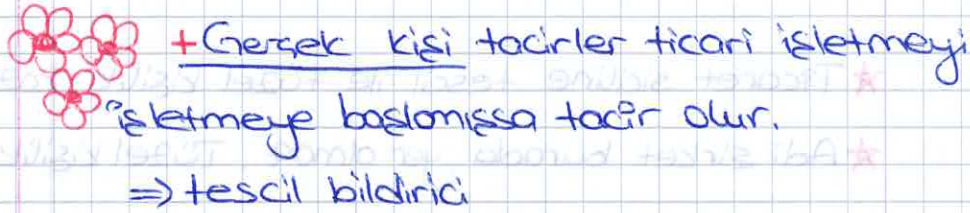 +Gerçek kişi tacirler ticari işletmeyi
işletmeye başlamışsa tacir olur.
⇒ tescil bildirici